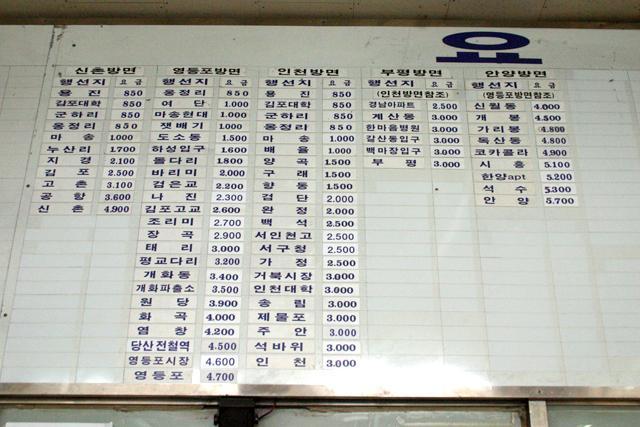 요
신촌방면
행선지 요금
용진 850
김포대학 850
군하리 850
옹정리 850
마송 1.000
누산리 1.700
지경 2.100
김포 2.500
고촌 3.100
공항 3.600
신촌 4.900
영등포방면
행선지 요금
옹정리 850
여단 1.000
마송현대 1.000
잿배기 1.000
도소동 1.500
하성입구 1.600
돌다리 1.800
바리미 2.000
검은교 2.200
나진 2.300
김포고교 2.600
조리미 2.700
장곡 2.900
태리 3.000
평교다리 3.200
개화동 3.400
개화파출소 3.500
원당 3.900
화곡 4.000
염창 4.200
당산전철역 4.500
영등포시장 4.600
영등포 4.700
인천방면
행선지 요금
용진 850
김포대학 850
군하리 850
옹정리 850
마송 1.000
배율 1.000
양곡 1.500
구래 1.500
향동 1.500
검단 2.000
완정 2.000
백석 2.500
서인천고 2.500
서구청 2.500
가정 2.500
거북시장 3.000
인천대학 3.000
송림 3.000
제물포 3.000
주안 3.000
석바위 3.000
인천 3.000
부평방면
행선지 요금
(인천방면참조)
경남아파트 2.500
계산동 3.000
한마음병원 3.000
갈산동입구 3.000
백마장입구 3.000
부평 3.000
안양방면
행선지 요금
(영등포방면참조)
신월동 4.000
개봉 4.500
가리봉 4.800
독산동 4.800
코카콜라 4.900
시흥 5.100
한양apt 5.200
석수 5.300
안양 5.700